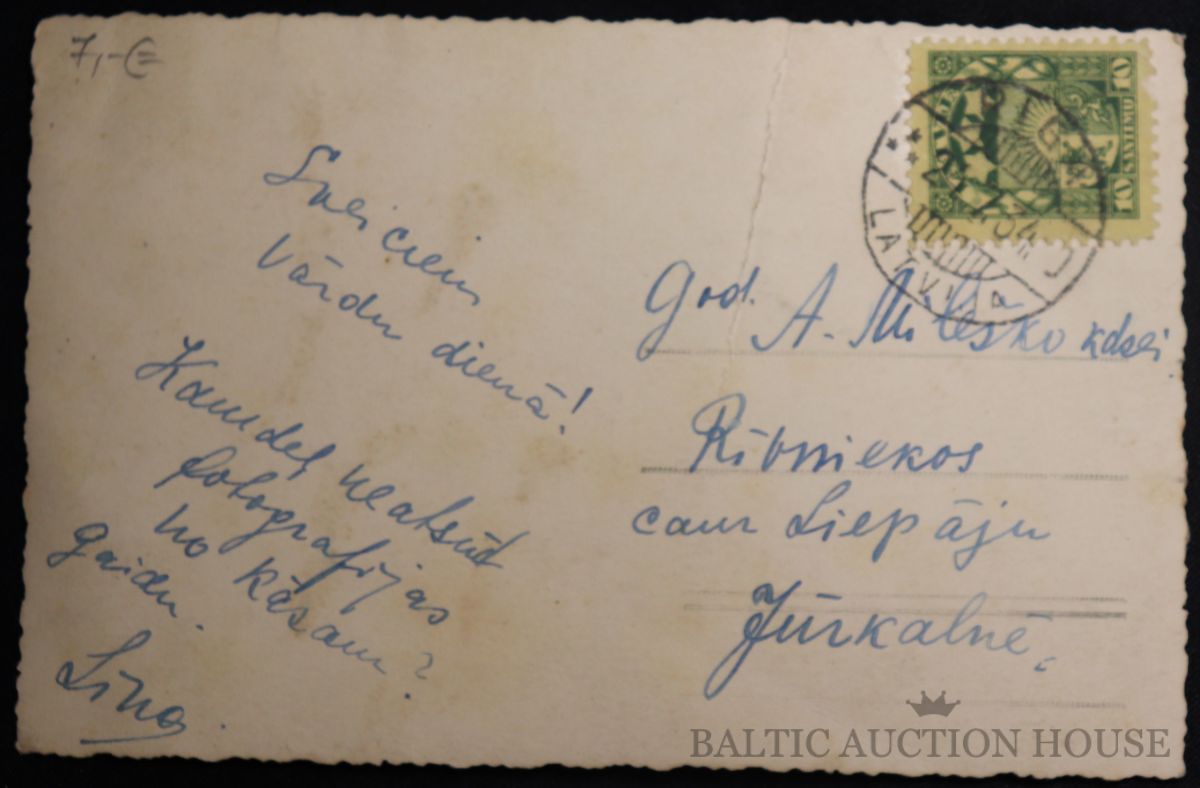 7,-€
Sveiciens
Vārdu dienā!
Kamdeļ neatsūt
fotografijas
no kāsam?
gaidu.
Līna.
LATVIJA
10 SANTIMU 10
RIGA
LATVIJA
God. A. Mileško kdzei
Rībniekos
caur Liepāju
Jūrkalnē.
BALTIC AUCTION HOUSE